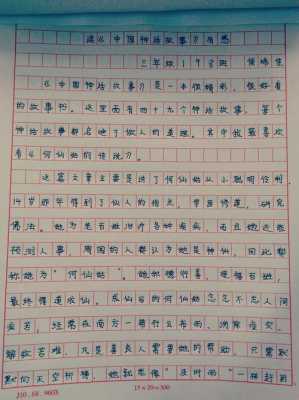 读《中国神话故事》有感
三年级1
《中国神话故事》是一本很精彩，很好看
的故事书。这里面有四十九个神话故事，每个
神话故事都包含了做人的道理。其中我最喜欢
看《何仙姑的传说》。
这篇文章主要是讲了何仙姑从小聪明伶俐，
14岁那年得到了仙人的指点，学习修道，研究
佛法。她为老百姓治疗各种疾病，而且她还能
预测人事，周围的人都认为她是神仙，因此都
称她为“何仙姑”。她积德行善，受得百姓，
最终得道成仙。成仙后的何仙姑念念不忘人间
疾苦，经常在南方一带行云布雨、消除疫灾、
解救苦难。凡是善良人需要她的帮助，只需默
默向天空祈祷，她就想像“及时雨”一样赶到
15×20=300